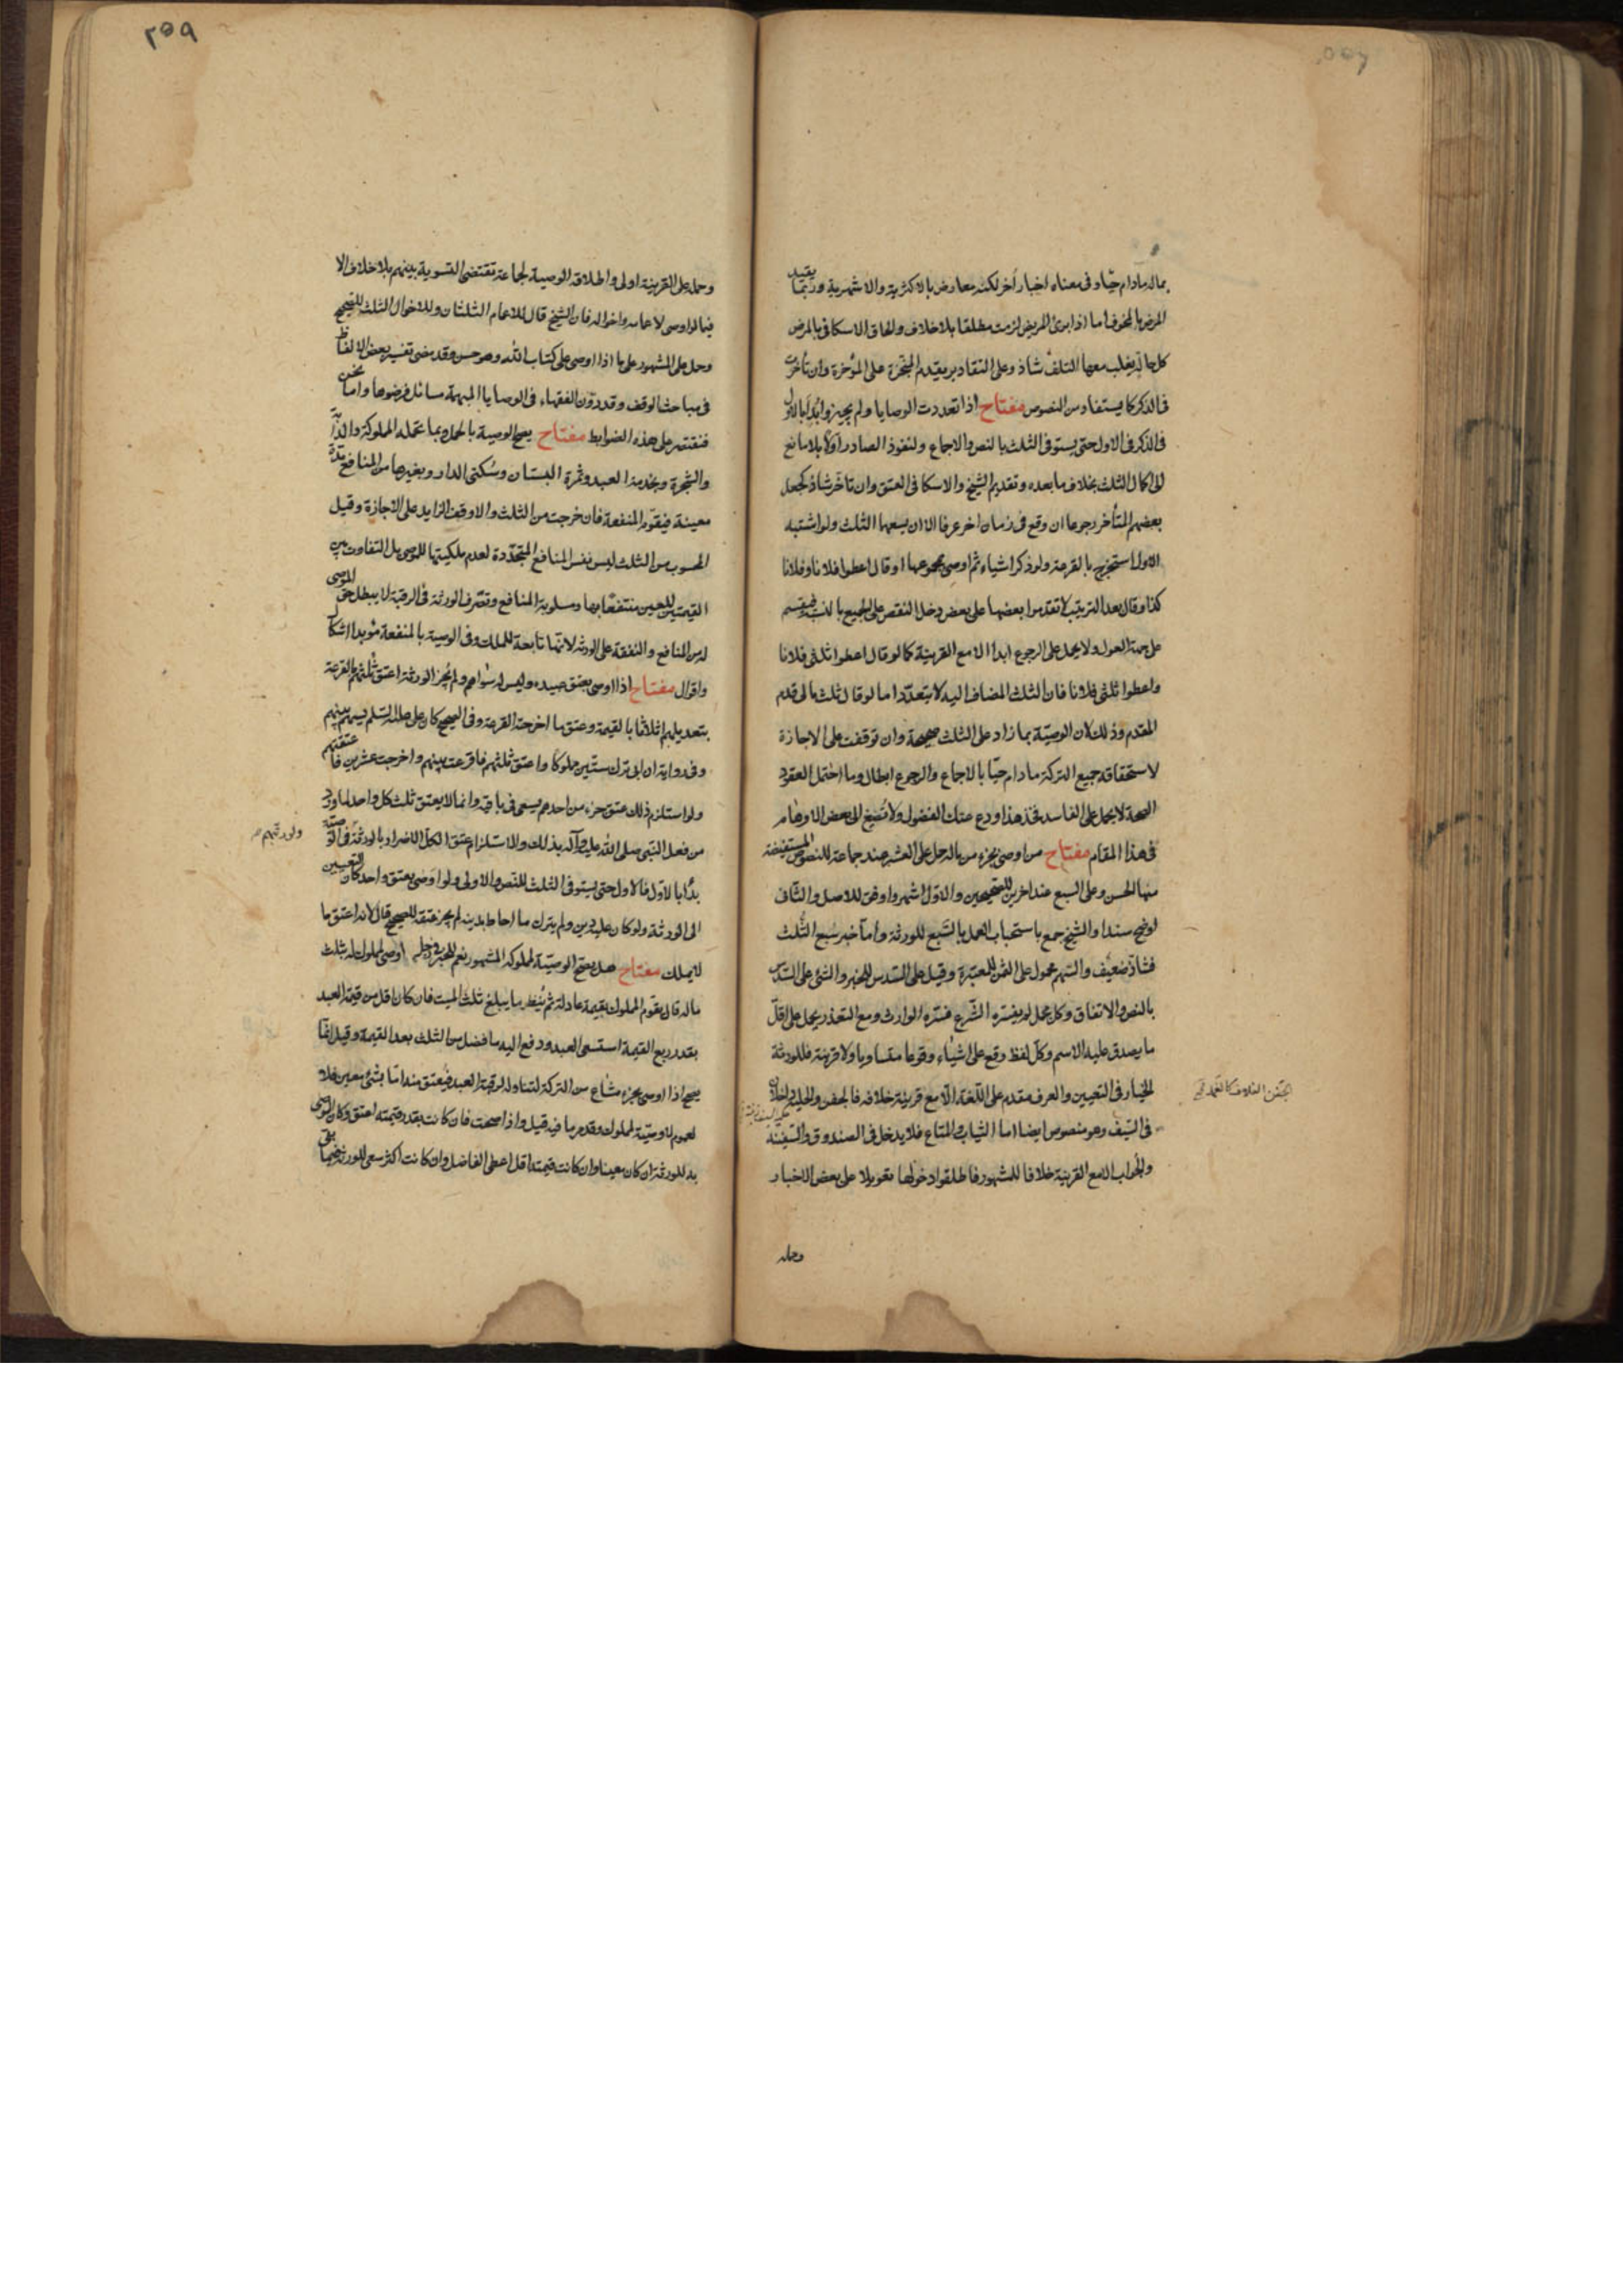 بماله مادام حيّا وفى معناه اخبار أخر لكنه معارض بالاكثرية والاشهرية وربّما يقيد
المرض بالمخوف اما اذا برئ المريض لزمت مطلقا بلا خلاف والحاق الاسكافى بالمرض
كل حالة يغلب معها التلف شاذ وعلى التقادير يقدم المنجّزة على المؤخرة وان تأخرت
فى الذكر كما يستفاد من النصوص مفتاح اذا تعددت الوصايا ولم يجيزوا بُدأ بالاول
فى الذكر فى الاول حتى يستوفى الثلث بالنص والاجماع ولنفوذ الصادر اوّلا بلا مانع
الى اكمال الثلث بخلاف ما بعده وتقديم الشيخ والاسكافى العتق وان تاخر شاذ كجعل
بعضهم المتأخر رجوعا ان وقع فى زمان اخر عرفا الا ان يسعهما الثلث ولو اشتبه
الاول استخرج بالقرعة ولو ذكر اشياء ثم اوصى بمجموعها او قال اعطوا فلانا وفلانا
كذا وقال بعد الترتيب لا تقدموا بعضها على بعض دخل النقص على الجميع بالنسبة فيقسم
على جهة العول ولا يحمل على الرجوع ابدا الا مع القرينة كما لو قال اعطوا ثلثى فلانا
واعطوا ثلثى فلانا فان الثلث المضاف اليه لا يتعدّد اما لو قال ثلث مالى قدم
المقدم وذلك لان الوصيّة بما زاد على الثلث صحيحة وان توقفت على الاجازة
لاستحقاقه جميع التركة مادام حيّا بالاجماع والرجوع ابطال وما احتمل العقود
الصحة لا يحمل على الفاسد فخذ هذا ودع عنك الفضول ولا تُصغ الى بعض الاوهام
فى هذا المقام مفتاح من اوصى بجزء من ماله حمل على العشر عند جماعة للنصوص المستفيضة
منها الحسن وعلى السبع عند اخرين للصحيحين والاوّل اشهر واوفق للاصل والثانى
اوضح سندا والشيخ جمع باستحباب العمل بالسّبع للورثة وأمّا خبر سُبع الثُلث
فشاذّ ضعيف والسهم محمول على الثمن للمعتبرة وقيل على السّدس للخبر والشئ على السّدس
بالنص والاتفاق وكل مجمل لم يفسّره الشّرع فسّره الوارث ومع التعذر يحمل على اقلّ
ما يصدق عليه الاسم وكلّ لفظ وقع على اشياء وقوعا متساويا ولا قرينة فللورثة
الخيار فى التعيين والعرف مقدم على اللّغة الّا مع قرينة خلافه فالجفن والحلية داخلان
فى السّيف وهو منصوص ايضا اما الثياب والمتاع فلا يدخل فى الصندوق والسّفينة
والجراب الا مع القرينة خلافا للمشهور فاطلقوا دخولها تعويلا على بعض الاخبار
وحمله
وحمله على القرينة اولى واطلاقه الوصية لجماعة تقتضى التسوية بينهم بلا خلاف الا
فيما لو اوصى لاعمامه واخواله فان الشيخ قال للاعمام الثلثان وللاخوال الثلث للصّحيح
وحمل على المشهور على ما اذا اوصى على كتاب الله وهو حسن وقد مضى تفسير بعض الالفاظ
فى مباحث الوقف وقد دوّن الفقهاء فى الوصايا المبهمة مسائل فرضوها واما نحن
فنقتصر على هذه الضوابط مفتاح يصح الوصية بالحمل وبما تحمله المملوكة والدابّة
والشجرة وبخدمة العبد وثمرة البستان وسُكنى الدار وبغيرها من المنافع مدّة
معينة فيقوّم المنفعة فان خرجت من الثلث والا وقف الزايد على الاجازة وقيل
المحسوب من الثلث ليس نفس المنافع المتجدّدة لعدم ملكيتها للموصى بل التفاوت بين
القيمتين للعين منتفعًا بها ومسلوبة المنافع وتصّرف الورثة فى الرقبة لا يبطل حق الموصى
له من المنافع والنفقة على الورثة لانّها تابعة للملك وفى الوصية بالمنفعة مؤبدا اشكال
واقوال مفتاح اذا اوصى بعتق عبيده وليس له سواهم ولم يُجز الورثة اعتق ثُلثهم بالقرعة
بتعديلهم اثلاثا بالقيمة وعتق ما اخرجته القرعة وفى الصحيح كان على عليه السّلم يسهم بينهم
وفى رواية ان ابى ترك ستّين مملوكًا واعتق ثلثهم فاقرعت بينهم واخرجت عشرين فاعتقتهم
ولو استلزم ذلك عتق جزء من احدهم يسعى فى باقيه وانما لا يعتق ثلث كل واحد لما ورد
من فعل النّبى صلى الله عليه وآله بذلك والاستلزام عتق الكل الاضرار بالورثة ولو رتّبهم فى الوصيّة
بدأ بالاوّل فالاول حتى يستوفى الثلث للنّص والاولى ولو اوصى بعتق واحد كان التعيين
الى الورثة ولو كان عليه دين ولم يترك ما احاط بدينه لم يجز عتقه للصحيح قال لانه اعتق ما
لا يملك مفتاح هل يصحّ الوصيّة لمملوكه المشهور نعم للخبر رجل اوصى لمملوك له بثلث
ماله قال يقوّم المملوك بقيمة عادلة ثم يُنظر ما يبلغ ثلث الميت فان كان اقل من قيمة العبد
بقدر ربع القيمة استسعى العبد ودفع اليه ما فضل من الثلث بعد القيمة وقيل انمّا
يصح اذا اوصى بجزء مشاع من التركة لتناوله لرقبة العبد فيعتق منه امّا بشئ معين فلا
لعموم لا وصيّة لمملوك وقد مر ما فيه قيل واذا صحت فان كانت بقدر قيمته اعتق وكان الموصى
به للورثة ان كان معينا وان كانت قيمته اقل اعطى الفاضل وان كانت اكثر سعى للورثة فيما بقى